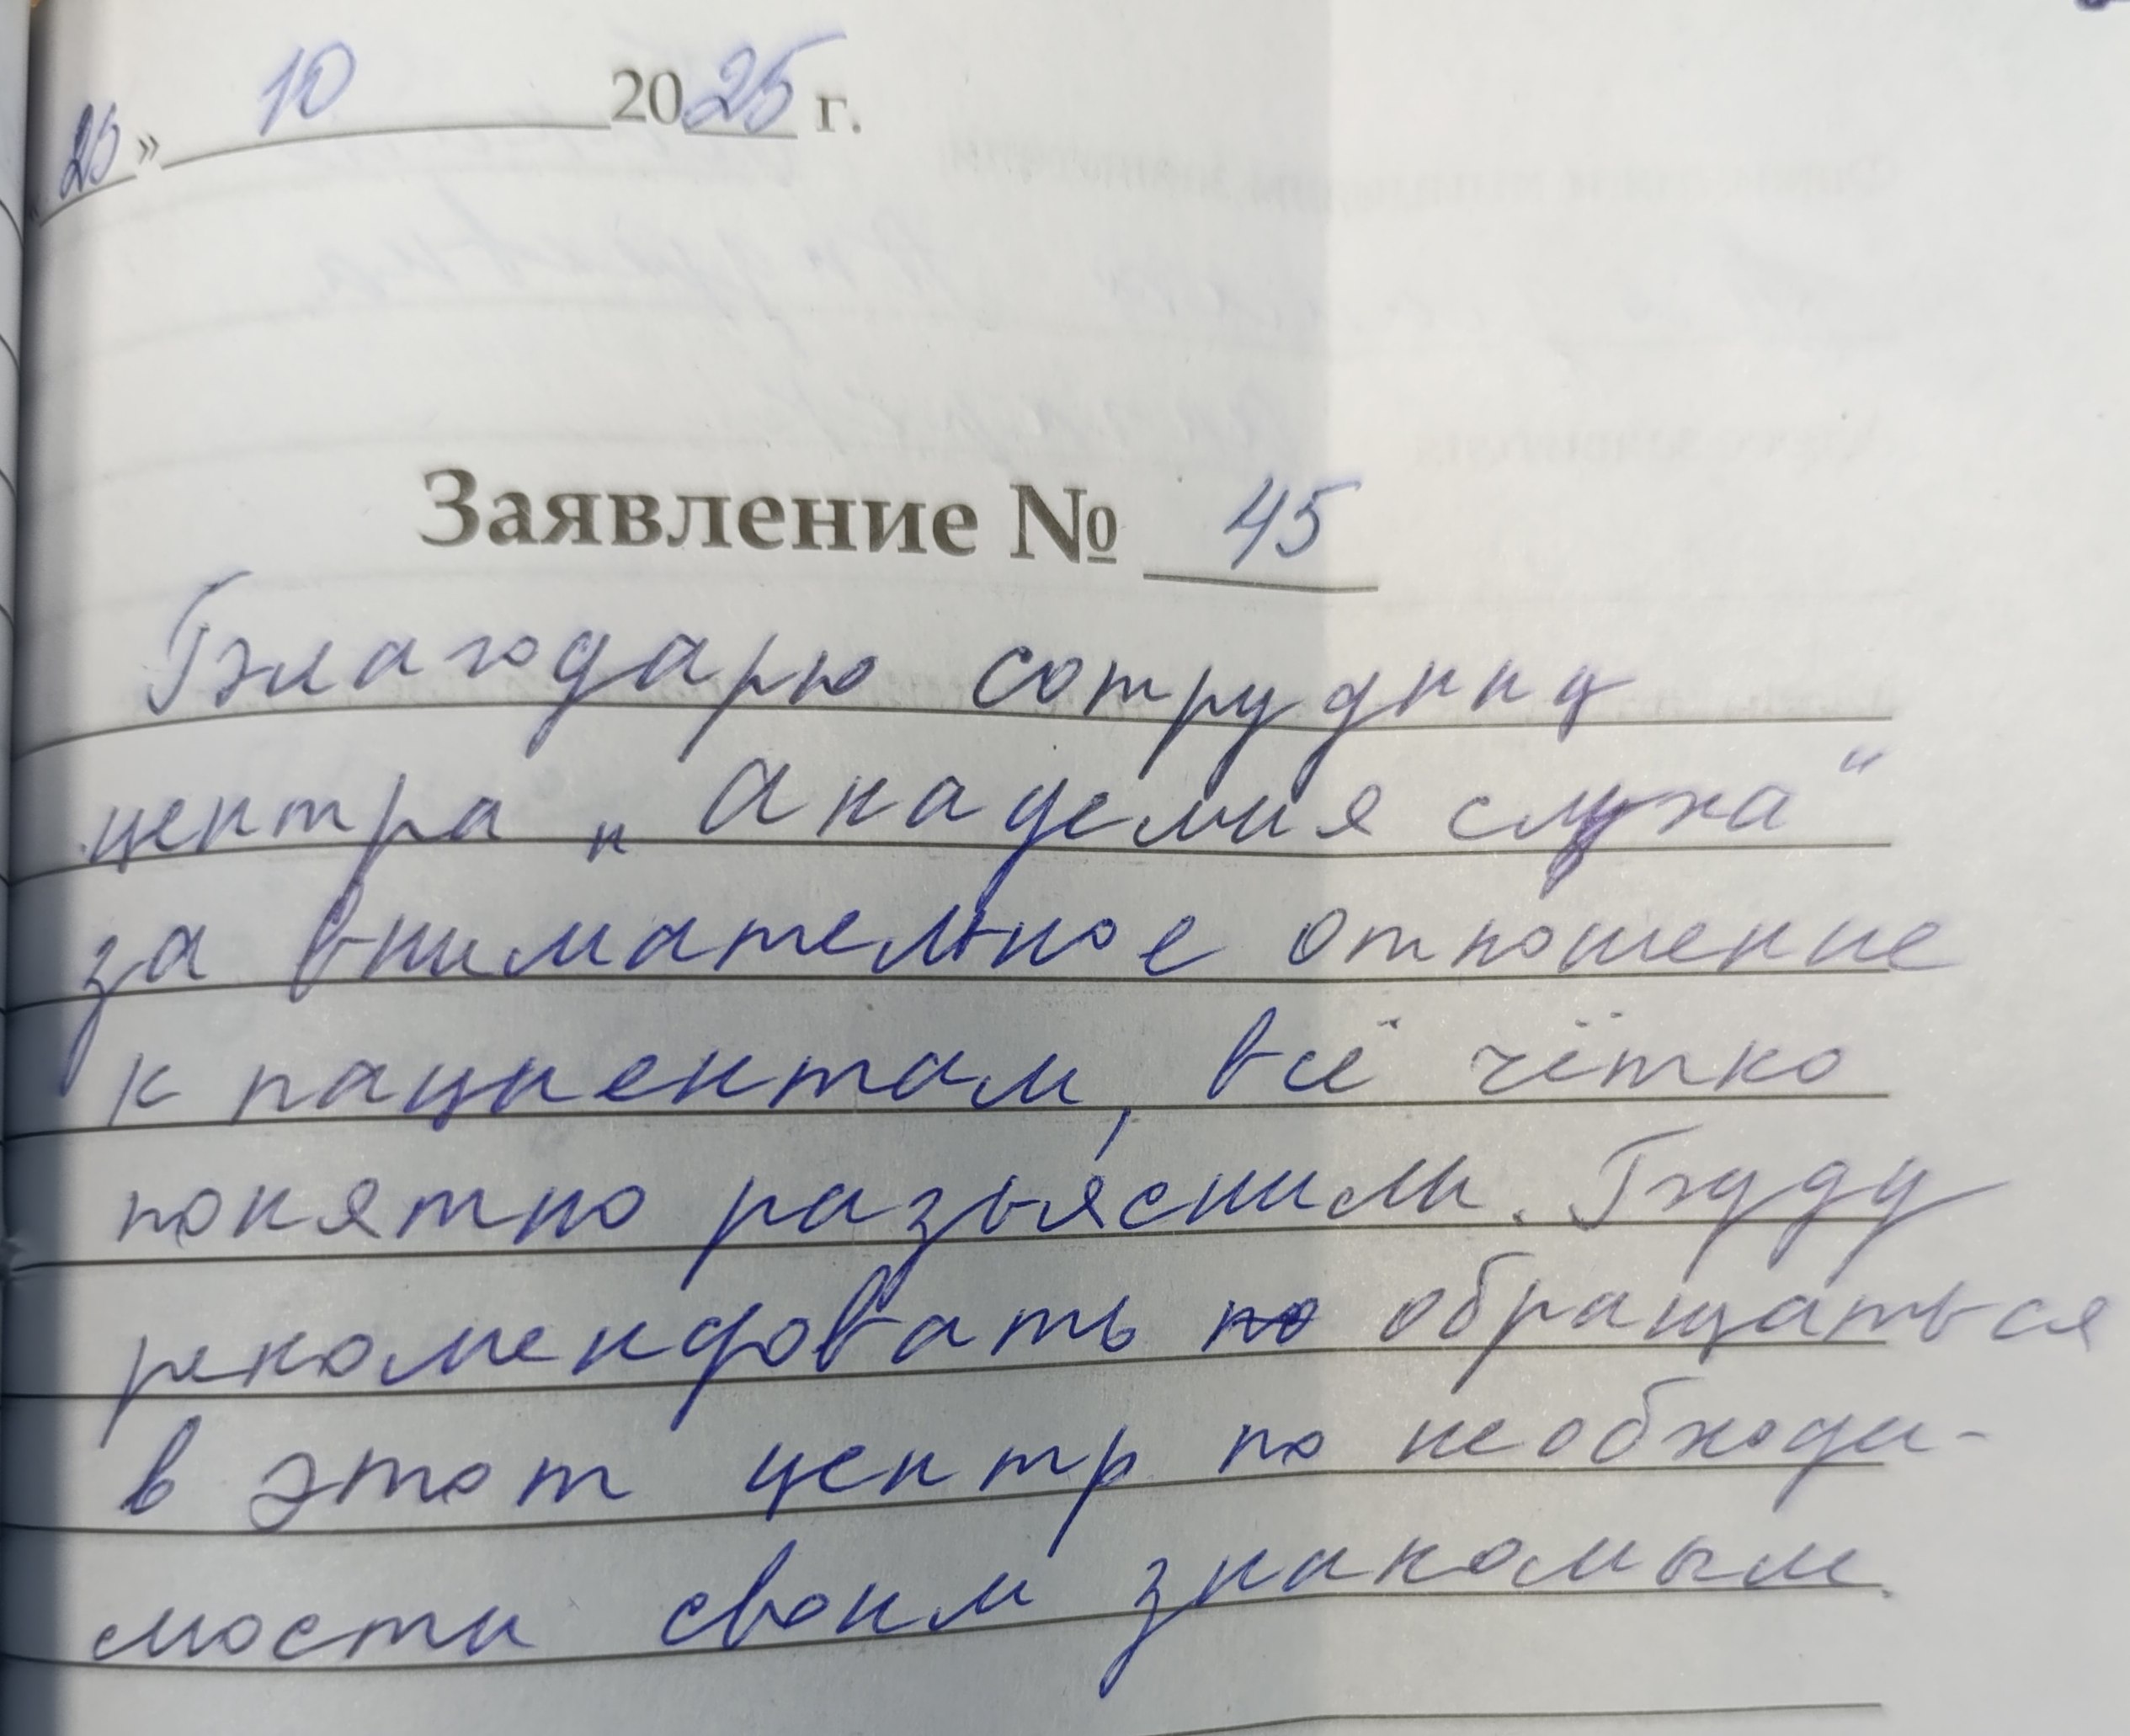 «20» 10 2025 г.
Заявление № 45
Благодарю сотрудниц
центра „Академия слуха“
за внимательное отношение
к пациентам, всё чётко
понятно разъяснили. Буду
рекомендовать обращаться
в этот центр по необходи-
мости своим знакомым.